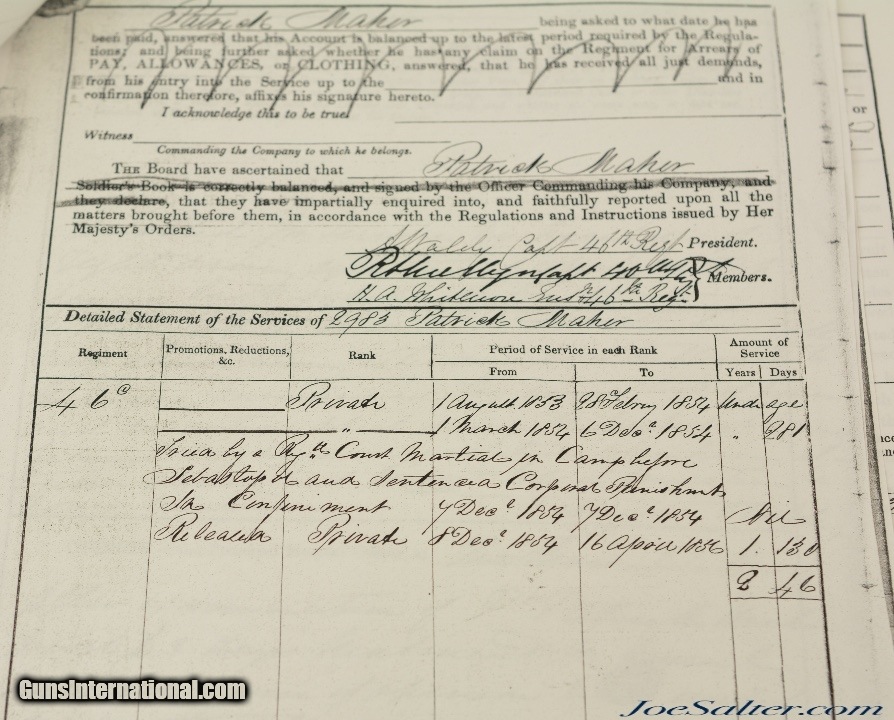 Patrick Maher being asked to what date he has
been paid, answered that his Account is balanced up to the latest period required by the Regula-
tions; and being further asked whether he has any claim on the Regiment for Arrears of
PAY, ALLOWANCES, or CLOTHING, answered, that he has received all just demands,
from his entry into the Service up to the and in
confirmation therefore, affixes his signature hereto.
I acknowledge this to be true
Witness
Commanding the Company to which he belongs.
THE Board have ascertained that Patrick Maher
Soldier's Book is correctly balanced, and signed by the Officer Commanding his Company, and
they declare, that they have impartially enquired into, and faithfully reported upon all the
matters brought before them, in accordance with the Regulations and Instructions issued by Her
Majesty's Orders.
Capt 46th Regt President.
Capt Members.
H. A. Whitmore 46th Regt
Detailed Statement of the Services of 2983 Patrick Maher
Regiment Promotions, Reductions, &c. Rank Period of Service in each Rank Amount of Service
From To Years Days
46 Private 1 August 1853 28 Febry 1854 Under age
" 1 March 1854 6 Decr 1854 " 281
Tried by a Regtl Court Martial in Camp before
Sebastopol and Sentenced Corporal Punishment
In Confinement 7 Decr 1854 7 Decr 1854 Nil
Released Private 8 Decr 1854 16 April 1856 1. 130
2 46
or
GunsInternational.com
JoeSalter.com